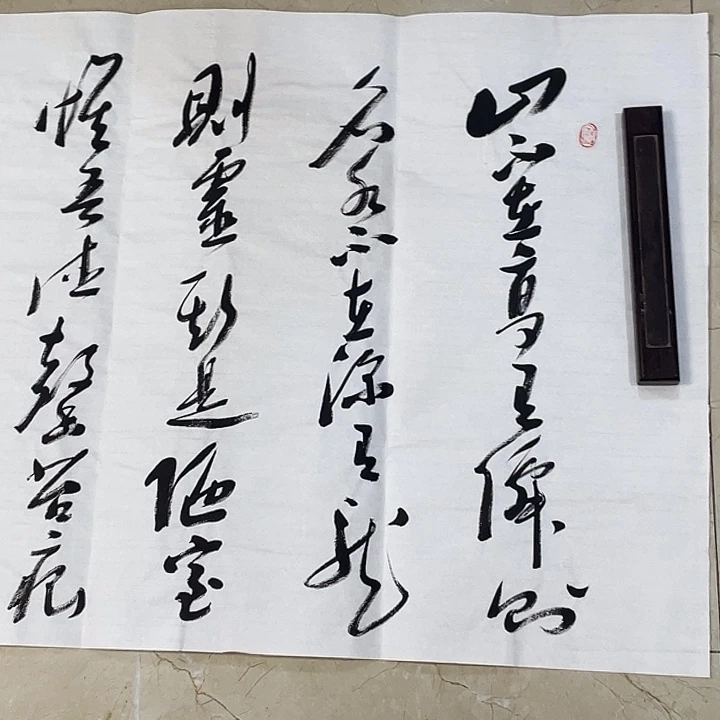 山不在高有僊則
名水不在深有龍
則靈斯是陋室
惟吾德馨苔痕